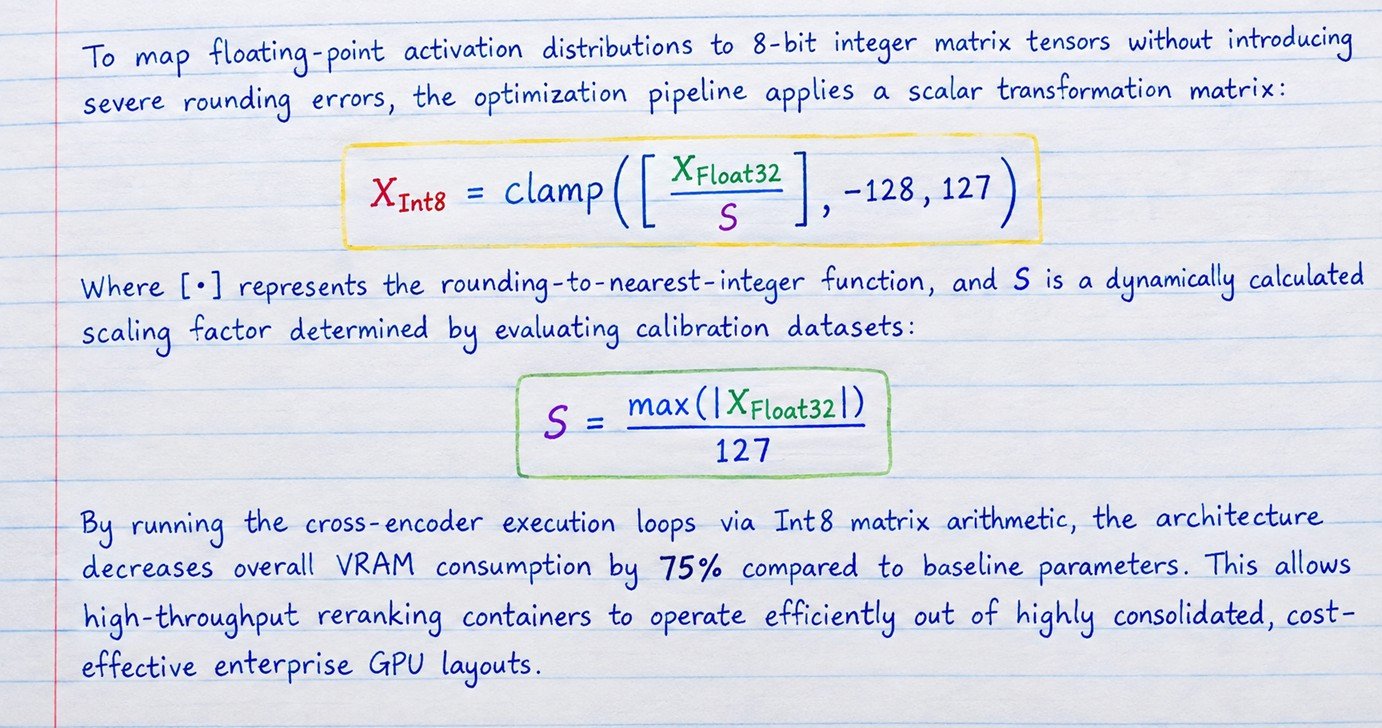 To map floating-point activation distributions to 8-bit integer matrix tensors without introducing
severe rounding errors, the optimization pipeline applies a scalar transformation matrix:
X_Int8 = clamp([X_Float32 / S], -128, 127)
Where [•] represents the rounding-to-nearest-integer function, and S is a dynamically calculated
scaling factor determined by evaluating calibration datasets:
S = max(|X_Float32|) / 127
By running the cross-encoder execution loops via Int8 matrix arithmetic, the architecture
decreases overall VRAM consumption by 75% compared to baseline parameters. This allows
high-throughput reranking containers to operate efficiently out of highly consolidated, cost-
effective enterprise GPU layouts.